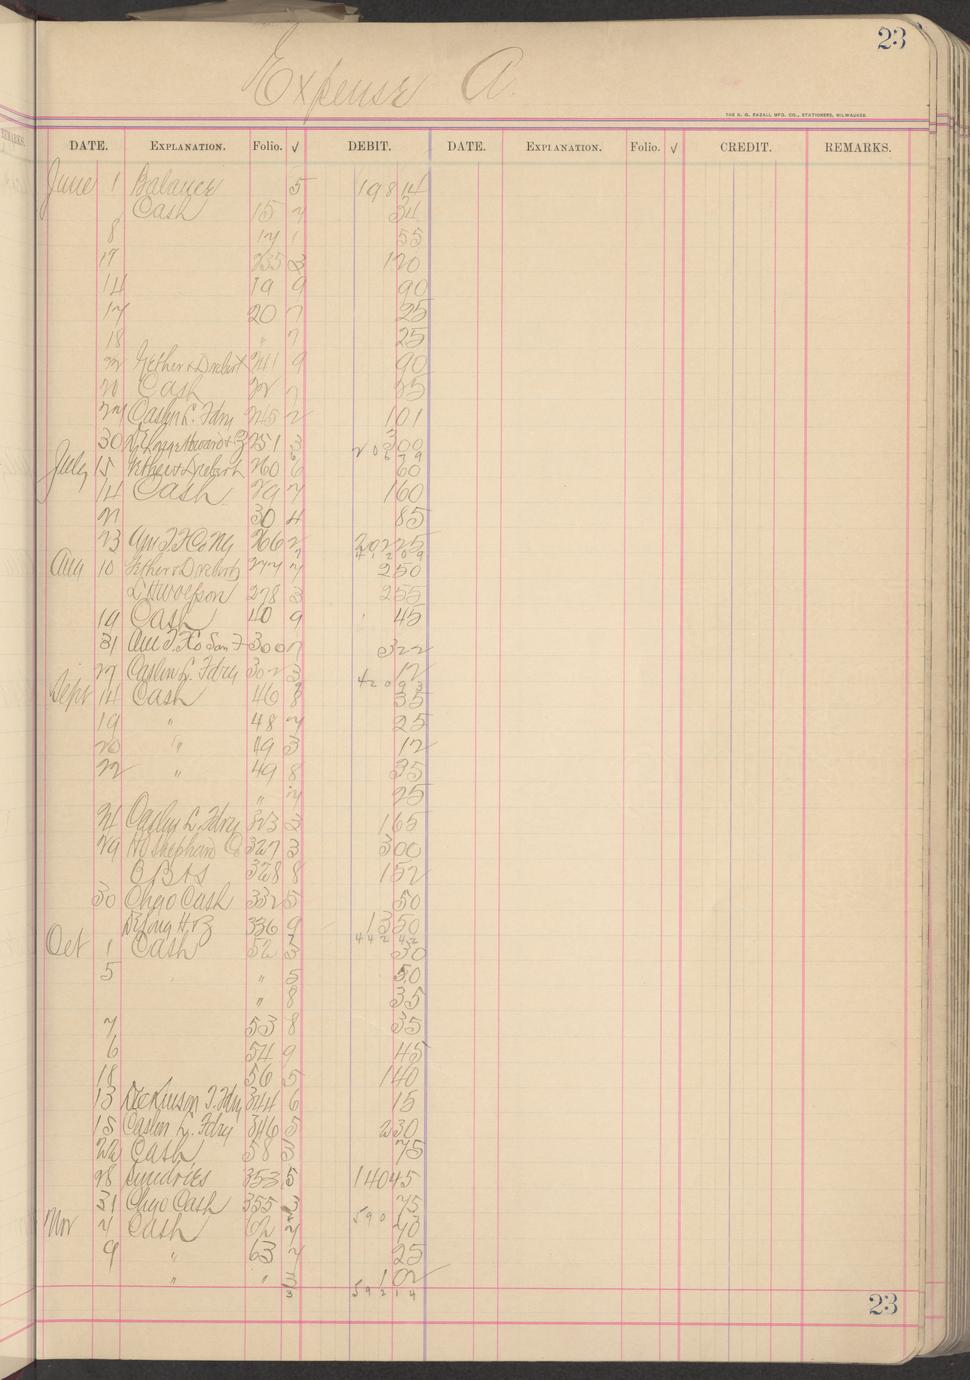 23
Expense A.
THE H. G. RAZALL MFG. CO., STATIONERS, MILWAUKEE
REMARKS.
DATE. EXPLANATION. Folio. √ DEBIT. DATE. EXPLANATION. Folio. √ CREDIT. REMARKS.
June 1 Balance 5 198 14
Cash 15 7 34
8 17 1 55
235 3 1 20
14 19 9 90
17 20 7 25
18 " 7 25
Gether & Drebert 241 9 90
20 Cash 22 7 25
27 Caslin L. Fdry 245 2 1 01
30 251 3 3 00
205 79
July 15 Gether & Drebert 260 6 60
14 Cash 29 7 1 60
21 30 4 85
23 266 2 202 25
412 09
Aug 10 Gether & Drebert 277 7 2 50
278 3 2 55
19 Cash 40 9 45
31 Am T. F. Co San F 300 7 3 22
27 Caslin L. Fdry 302 3 12
420 93
Sept 14 Cash 46 8 35
19 " 48 7 25
20 " 49 3 12
22 " 49 8 35
" 7 25
24 Caslin L. Fdry 323 3 1 65
29 HO Shephard Co 327 3 3 00
328 8 1 52
30 Chgo Cash 332 5 50
DeLong H & Z 336 9 13 50
442 42
Oct 1 Cash 52 3 30
5 " 5 50
" 8 35
7 53 8 35
6 54 9 45
18 56 5 1 40
13 Dickinson T. Fdry 344 6 15
15 Caslin L. Fdry 346 5 2 30
22 Cash 58 3 75
28 Sundries 353 5 140 45
31 Chgo Cash 355 3 75
590
Nov 7 Cash 62 7 40
9 " 63 7 25
" " 3 1 02
3 592 14
23